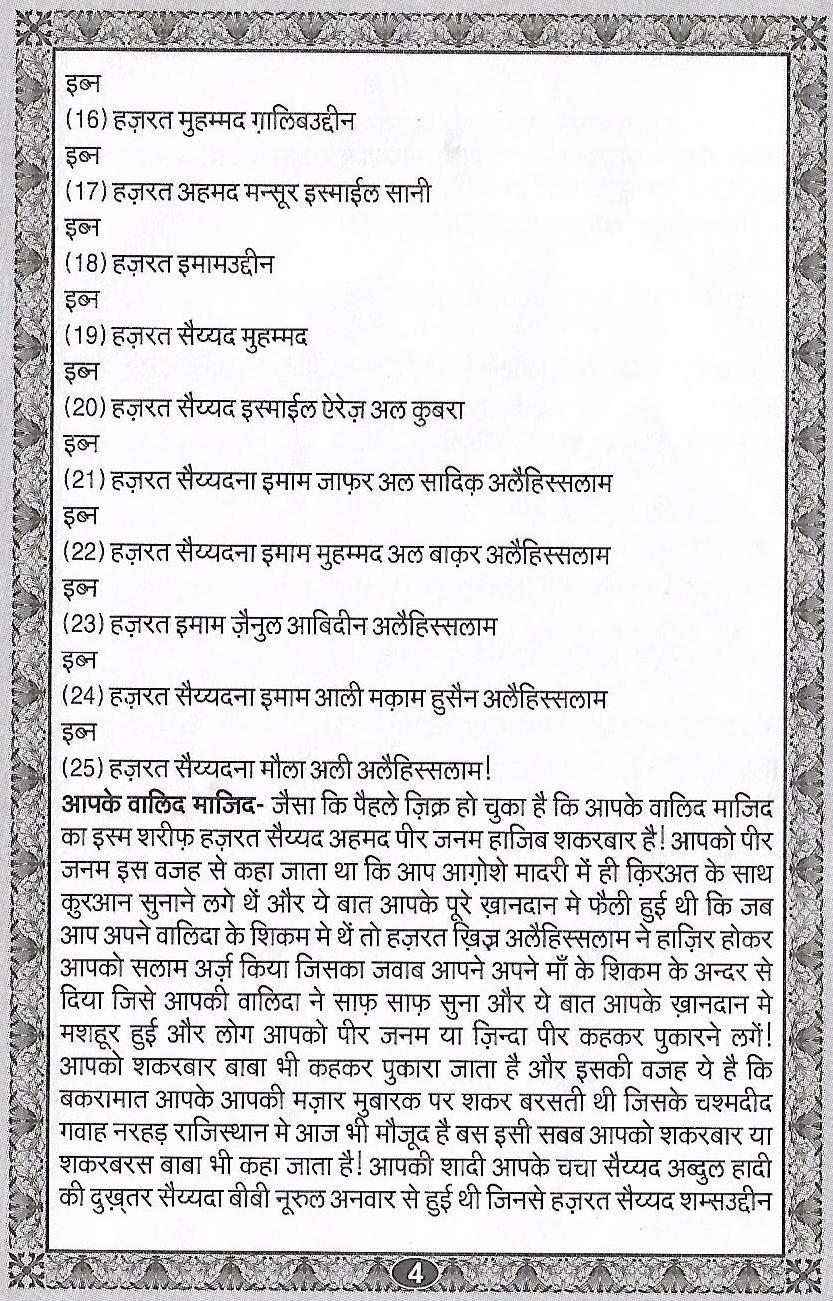 इब्न
(16) हज़रत मुहम्मद ग़ालिबउद्दीन
इब्न
(17) हज़रत अहमद मन्सूर इस्माईल सानी
इब्न
(18) हज़रत इमामउद्दीन
इब्न
(19) हज़रत सैय्यद मुहम्मद
इब्न
(20) हज़रत सैय्यद इस्माईल ऐरेज़ अल कुबरा
इब्न
(21) हज़रत सैय्यदना इमाम जाफ़र अल सादिक़ अलैहिस्सलाम
इब्न
(22) हज़रत सैय्यदना इमाम मुहम्मद अल बाक़र अलैहिस्सलाम
इब्न
(23) हज़रत इमाम ज़ैनुल आबिदीन अलैहिस्सलाम
इब्न
(24) हज़रत सैय्यदना इमाम आली मक़ाम हुसैन अलैहिस्सलाम
इब्न
(25) हज़रत सैय्यदना मौला अली अलैहिस्सलाम!
आपके वालिद माजिद- जैसा कि पैहले ज़िक्र हो चुका है कि आपके वालिद माजिद
का इस्म शरीफ़ हज़रत सैय्यद अहमद पीर जनम हाजिब शकरबार है! आपको पीर
जनम इस वजह से कहा जाता था कि आप आग़ोशे मादरी में ही क़िरअत के साथ
क़ुरआन सुनाने लगे थें और ये बात आपके पूरे ख़ानदान मे फैली हुई थी कि जब
आप अपने वालिदा के शिकम मे थें तो हज़रत ख़िज़्र अलैहिस्सलाम ने हाज़िर होकर
आपको सलाम अर्ज़ किया जिसका जवाब आपने अपने माँ के शिकम के अन्दर से
दिया जिसे आपकी वालिदा ने साफ़ साफ़ सुना और ये बात आपके ख़ानदान मे
मशहूर हुई और लोग आपको पीर जनम या ज़िन्दा पीर कहकर पुकारने लगें!
आपको शकरबार बाबा भी कहकर पुकारा जाता है और इसकी वजह ये है कि
बकरामात आपके आपकी मज़ार मुबारक पर शकर बरसती थी जिसके चश्मदीद
गवाह नरहड़ राजिस्थान मे आज भी मौजूद है बस इसी सबब आपको शकरबार या
शकरबरस बाबा भी कहा जाता है! आपकी शादी आपके चचा सैय्यद अब्दुल हादी
की दुख़्तर सैय्यदा बीबी नूरुल अनवार से हुई थी जिनसे हज़रत सैय्यद शम्सउद्दीन
4